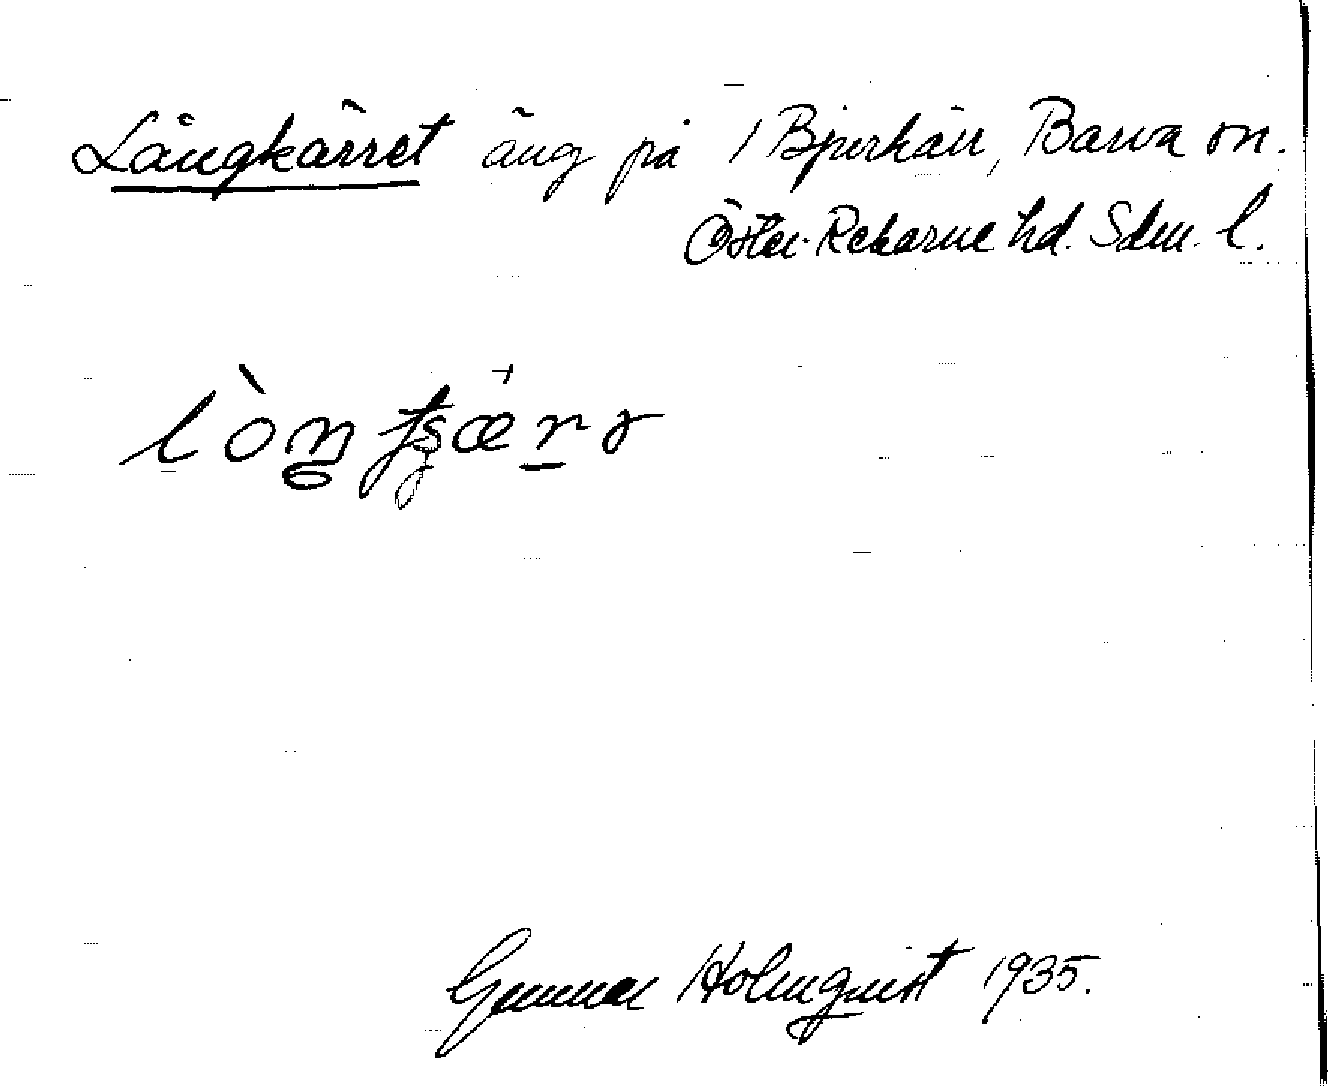 Långkärret äng på 1 Bjurkärr, Barva sn.
Öster-Rekarne hd. Sdm. l.
Gunnar Holmquist 1935.